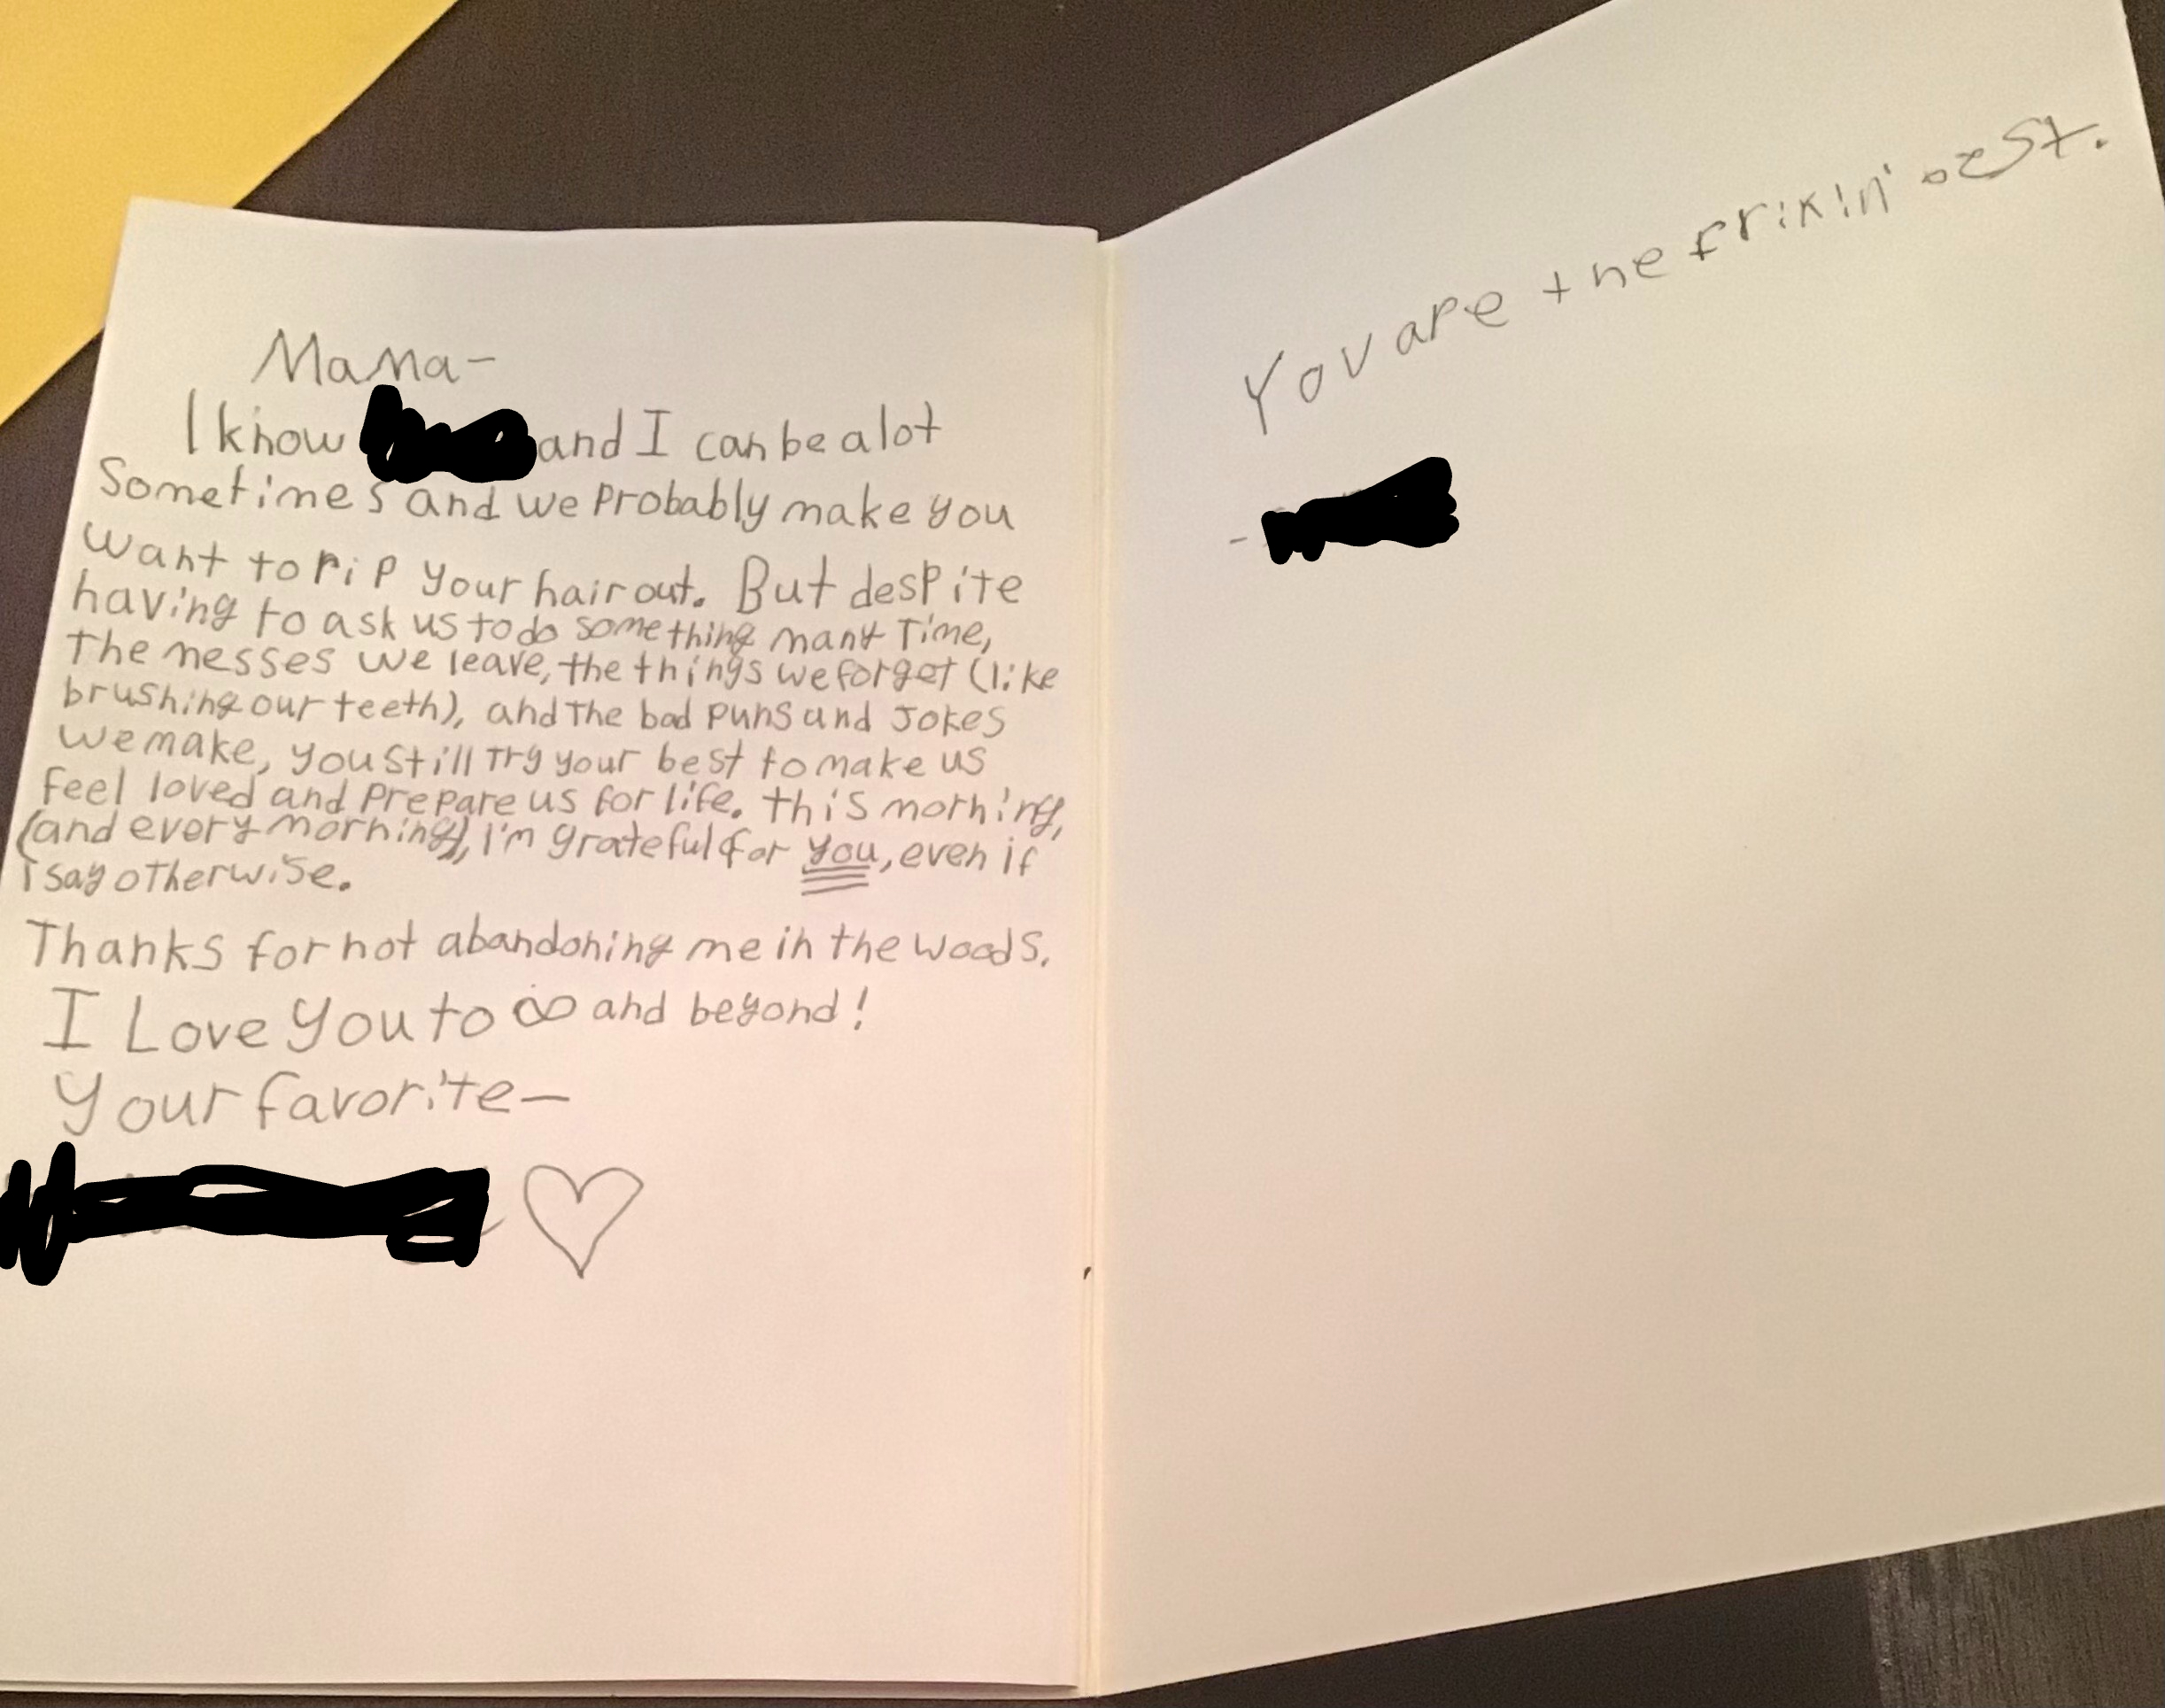 Mama-
I know and I can be alot
Sometimes and we probably make you
want to rip your hair out. But despite
having to ask us to do something many Time,
The messes we leave, the things we forget (like
brushing our teeth), and The bad puns and Jokes
we make, you still Try your best to make us
feel loved and prepare us for life. this morning,
(and every morning), I'm grateful for you, even if
I say oTherwise.
Thanks for not abandoning me in the woods.
I Love you to ∞ and beyond!
Your favorite-
You are the frikin' best.
-